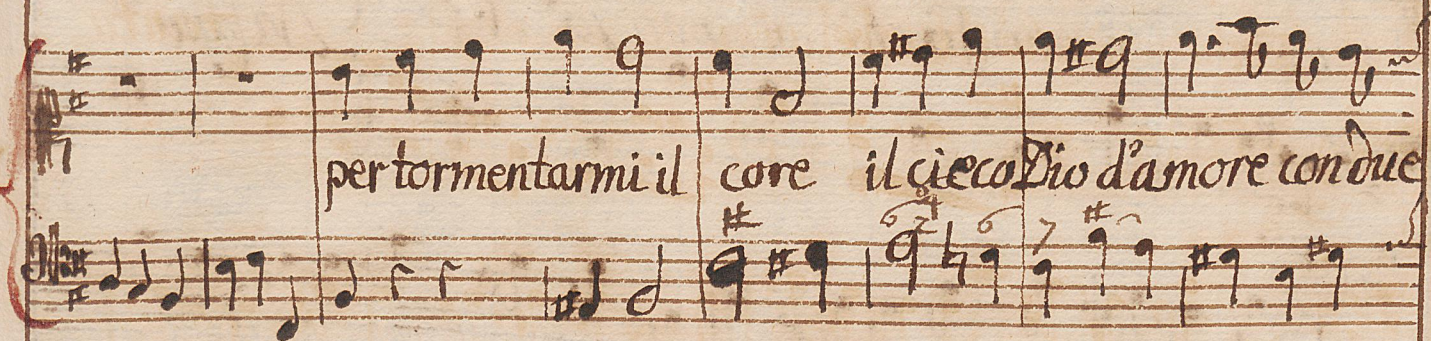 per tormentarmi il core il cieco Dio d'amore con due
6 7 6 7